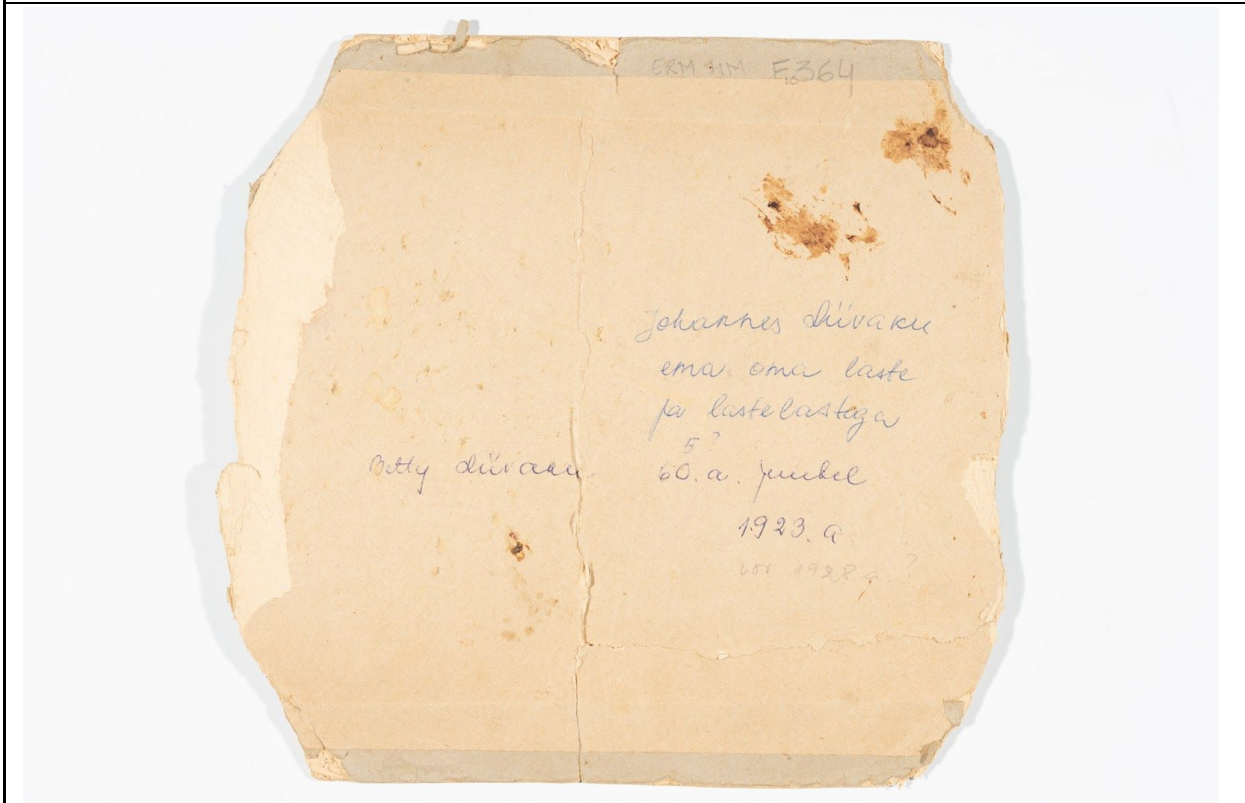 ERM HM F 364
Johannes Liivaku
ema oma laste
ja lastelastega
5?
Betty Liivaku
60. a. juubel
1923. a
või 1928 a ?